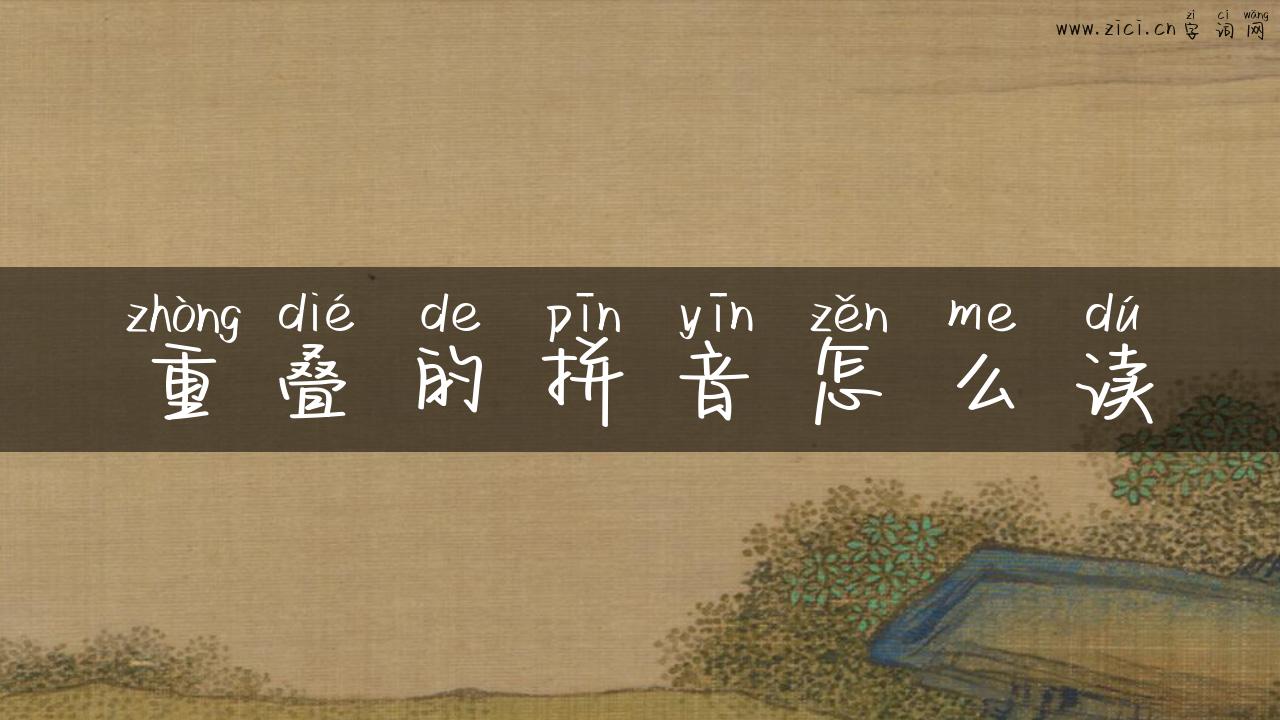 zì cí wǎng
www.zici.cn 字词网
zhòng dié de pīn yīn zěn me dú
重叠的拼音怎么读